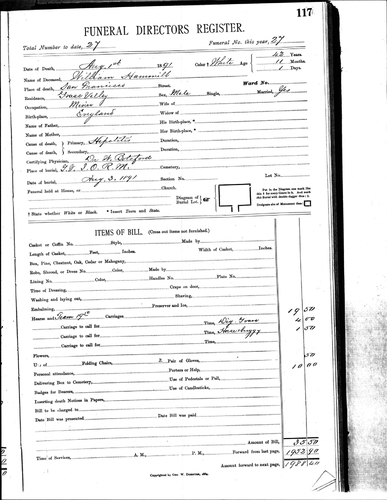 117
FUNERAL DIRECTORS REGISTER.
Total Number to date, 27 Funeral No. this year, 27
Date of Death, Aug 1st 1891 Color † White Age 42 Years.
11 Months
1 Days.
Name of Deceased, William Hammill
Place of death, San Francisco Street. Ward No.
Residence, Grass Valley Sex, Male Single, Married, Yes
Occupation, Miner Wife of
Birth-place, England Widow of
Name of Father, His Birth-place, *
Name of Mother, Her Birth-place, *
Cause of death, Primary, Hepatitis Duration,
Cause of death, Secondary, Duration,
Certifying Physician, Dr. W. Botsford
Place of burial, I.O.R.M. Cemetery,
Date of burial, Aug 3, 1891 Section No. Lot No.
Funeral held at House, or Church.
Diagram of Burial Lot
† State whether White or Black. * Insert Town and State.
ITEMS OF BILL. (Cross out items not furnished.)
Casket or Coffin No. Style, Made by
Length of Casket, Feet, Inches. Width of Casket, Inches
Box, Pine, Chestnut, Oak, Cedar or Mahogany,
Robe, Shroud, or Dress No. Color, Made by
Lining No. Color, Handles No. Plate No.
Time of Dressing, Crape on door,
Washing and laying out, Shaving,
Embalming, Preserver and Ice,
Hearse and Team Carriages 19 50
Carriage to call for Time, Dig Grave 4 00
Carriage to call for Time, 1 50
Carriage to call for Time,
Carriage to call for Time,
Flowers,
Use of Folding Chairs, 2 Pair of Gloves, 50
Personal attendance, Porters or Help, 10 00
Delivering Box to Cemetery, Use of Pedestals or Pall,
Badges for Bearers, Use of Candlesticks,
Inserting death Notices in Papers,
Bill to be charged to
Date Bill was presented Date Bill was paid
Amount of Bill, 35 50
Time of Services, A. M., P. M., Forward from last page, 1952 90
Amount forward to next page, 1988 40